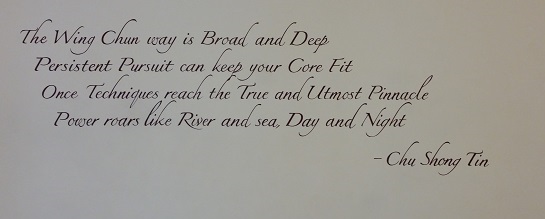 The Wing Chun way is Broad and Deep
Persistent Pursuit can keep your Core Fit
Once Techniques reach the True and Utmost Pinnacle
Power roars like River and sea, Day and Night
- Chu Shong Tin